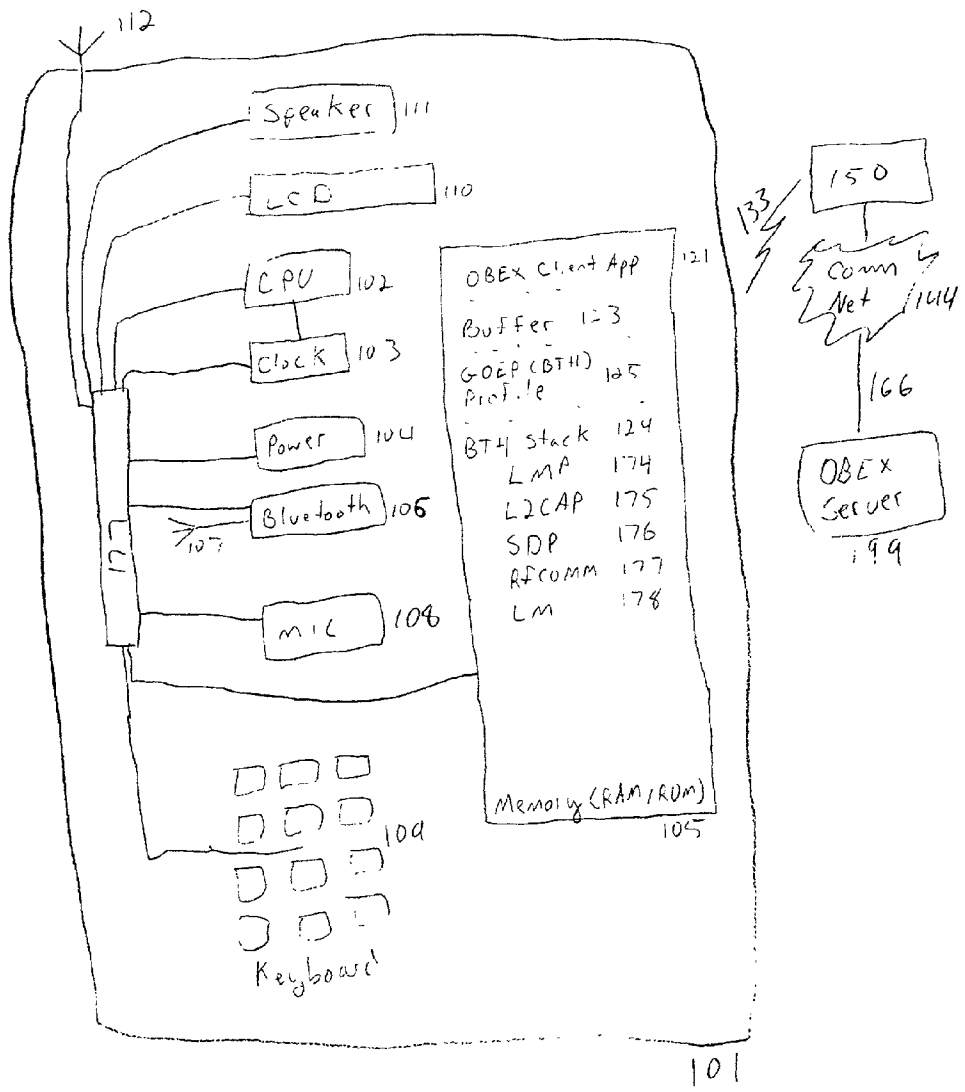 112
Speaker 111
LCD 110
CPU 102
Clock 103
Power 104
Bluetooth 106
107
177
MIC 108
109
Keyboard
OBEX Client App 121
Buffer 123
GOEP (BTH) 125
Profile
BTH Stack 124
LMP 174
L2CAP 175
SDP 176
RFCOMM 177
LM 178
Memory (RAM/ROM)
105
133
150
Comm
Net 144
166
OBEX
Server
199
101